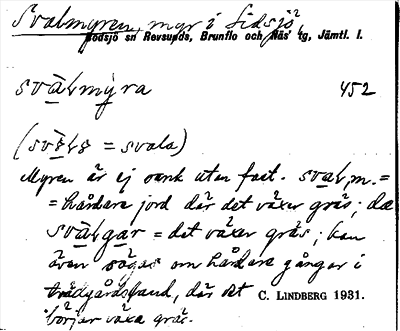 Svalmyren, myr i Sidsjö,
Bodsjö sn Revsunds, Brunflo och Näs' tg, Jämtl. l.
svàlmỳra 452
(svàlạ = svala)
Myren är ej sank utan fast. sval, m. =
= hårdare jord där det växer gräs; da
svàlgar = det växer gräs; kan
även sägas om hårdare gångar i
trädgårdsland, där det C. LINDBERG 1931.
börjar växa gräs.